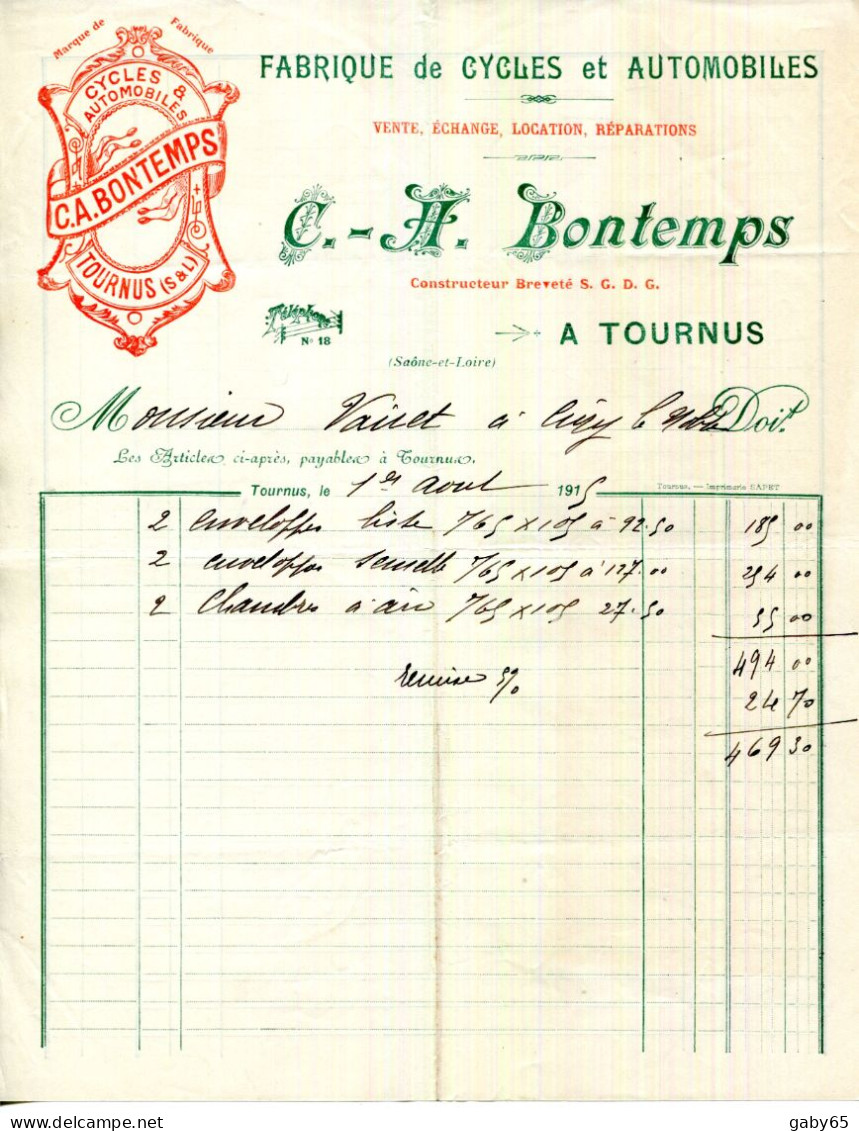 Marque de Fabrique
CYCLES &
AUTOMOBILES
C.A. BONTEMPS
TOURNUS (S&L)
FABRIQUE de CYCLES et AUTOMOBILES
VENTE, ÉCHANGE, LOCATION, RÉPARATIONS
C.-A. Bontemps
Constructeur Breveté S. G. D. G.
Téléphone
No 18
A TOURNUS
(Saône-et-Loire)
Monsieur à le Doit
Les Articles ci-après, payables à Tournus.
Tournus, le 1er Aout 1915
Tournus. — Imprimerie SAPET
2 enveloppes liste 765 x 105 à 92.50 185 00
2 enveloppes semelle 765 x 105 à 127.00 254 00
2 Chambres à air 765 x 105 27.50 55 00
494 00
remise 5% 24 70
469 30
delcampe.net
gaby65